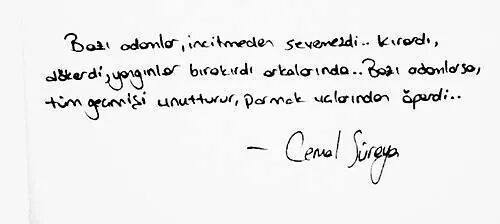 Bazı adamlar, incitmeden sevemezdi.. kırardı,
dökerdi, yangınlar bırakırdı arkalarında.. Bazı adamlarsa,
tüm geçmişi unutturur, parmak uçlarından öperdi..
— Cemal Süreya